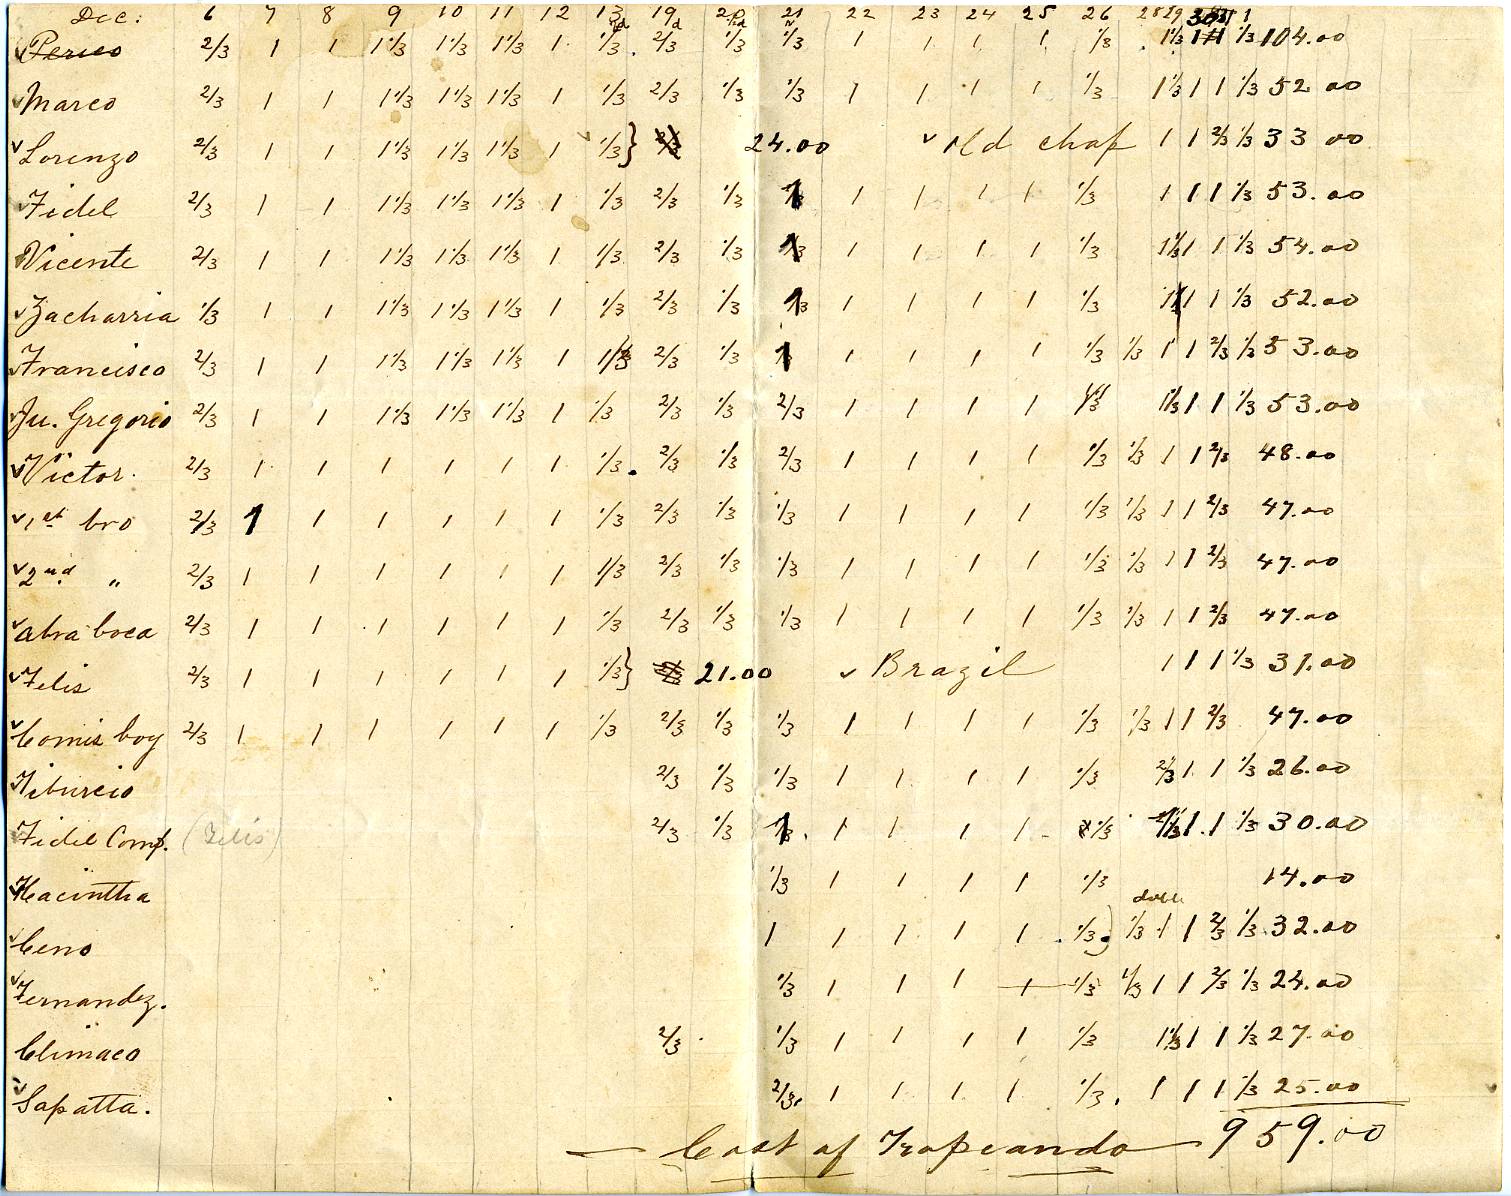 Dec: 6 7 8 9 10 11 12 13 19 20 21 22 23 24 25 26 28 29 30 31 1
Perico 2/3 1 1 1 1/3 1 1/3 1 1/3 1 1/3 2/3 1/3 1/3 1 1 1 1 1/3 1 1/3 1 1 1/3 104.00
Marco 2/3 1 1 1 1/3 1 1/3 1 1/3 1 1/3 2/3 1/3 1/3 1 1 1 1 1/3 1 1/3 1 1 1/3 52.00
Lorenzo 2/3 1 1 1 1/3 1 1/3 1 1/3 1 1/3 } 24.00 Old chap 1 1 2/3 1/3 33 00
Fidel 2/3 1 1 1 1/3 1 1/3 1 1/3 1 1/3 2/3 1/3 1 1 1 1 1 1/3 1 1 1 1/3 53.00
Vicente 2/3 1 1 1 1/3 1 1/3 1 1/3 1 1/3 2/3 1/3 1 1 1 1 1 1/3 1 1/3 1 1 1/3 54.00
Zacharria 1/3 1 1 1 1/3 1 1/3 1 1/3 1 1/3 2/3 1/3 1 1 1 1 1 1/3 1 1 1 1/3 52.00
Francisco 2/3 1 1 1 1/3 1 1/3 1 1/3 1 1/3 2/3 1/3 1 1 1 1 1 1/3 1/3 1 1 2/3 1/3 53.00
Ju. Gregorio 2/3 1 1 1 1/3 1 1/3 1 1/3 1 1/3 2/3 1/3 2/3 1 1 1 1 1/3 1 1/3 1 1 1/3 53.00
Victor. 2/3 1 1 1 1 1 1 1/3 2/3 1/3 2/3 1 1 1 1 1/3 1/3 1 1 2/3 48.00
1st bro 2/3 1 1 1 1 1 1 1/3 2/3 1/3 1/3 1 1 1 1 1/3 1/3 1 1 2/3 47.00
2nd " 2/3 1 1 1 1 1 1 1/3 2/3 1/3 1/3 1 1 1 1 1/3 1/3 1 1 2/3 47.00
abra boca 2/3 1 1 1 1 1 1 1/3 2/3 1/3 1/3 1 1 1 1 1/3 1/3 1 1 2/3 47.00
Felis 2/3 1 1 1 1 1 1 1/3 } 21.00 Brazil 1 1 1 1/3 31.00
Comis boy 2/3 1 1 1 1 1 1 1/3 2/3 1/3 1/3 1 1 1 1 1/3 1/3 1 1 2/3 47.00
Tiburcio 2/3 1/3 1/3 1 1 1 1 1/3 2/3 1 1 1/3 26.00
Fidel Comp. (Felis) 2/3 1/3 1 1 1 1 1 1/3 1 1 1/3 30.00
Hacintha 1/3 1 1 1 1 1/3 14.00
doble
Ceno 1 1 1 1 1 1/3 ) 1/3 1 1 2/3 1/3 32.00
Fernandez. 1/3 1 1 1 1 1/3 1/3 1 1 2/3 1/3 24.00
Climaco 2/3 1/3 1 1 1 1 1/3 1 1/3 1 1 1/3 27.00
Sapatta. 2/3 1 1 1 1 1/3 1 1 1 1/3 25.00
— Cost of Tropeando — 959.00